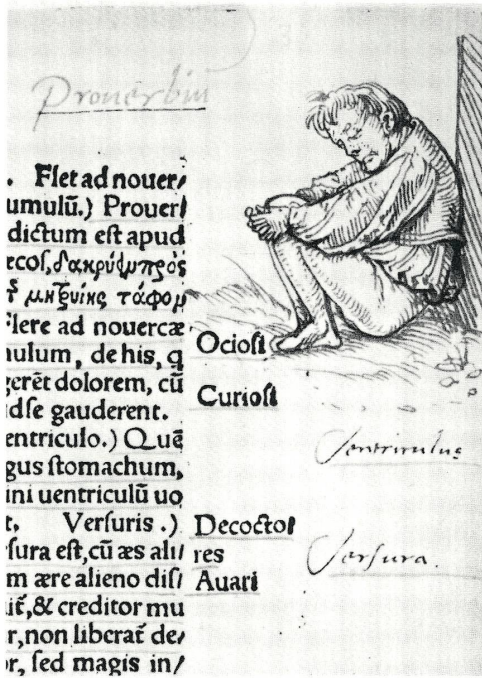 Prouerbiū
. Flet ad nouer/
umulū.) Prouer/
dictum est apud
ecos, δακρύων πρὸς
μητρυιῆς τάφορ
Flere ad nouercæ
nulum, de his, q
gerēt dolorem, cū
idse gauderent.
entriculo.) Quē
gus stomachum,
ini uentriculū uo
t. Versuris.)
rsura est, cū æs ali/
m ære alieno dis/
uit, & creditor mu
r, non liberat de/
or, sed magis in/
Ociosi
Curiosi
Ventriculus
Decocto/
res
Auari
Versura.